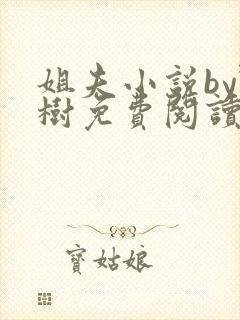 姐夫小说by
樹免費閱讀
寶姑娘